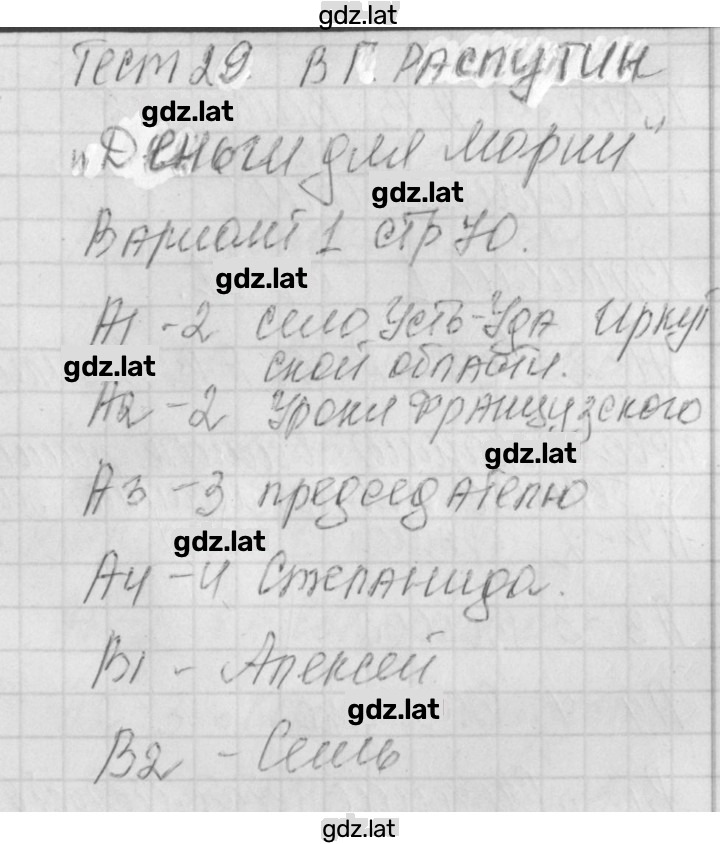 gdz.lat
Тест 29. В Г. РАСПУТИН
gdz.lat
"Деньги для Марии"
gdz.lat
Вариант 1 стр 70.
gdz.lat
А1 - 2 село Усть-Уда Иркут
gdz.lat
ской области.
А2 - 2 Уроки французского
gdz.lat
А3 - 3 председателю
gdz.lat
А4 - 4 Степанида.
В1 - Алексей
gdz.lat
В2 - Семь
gdz.lat